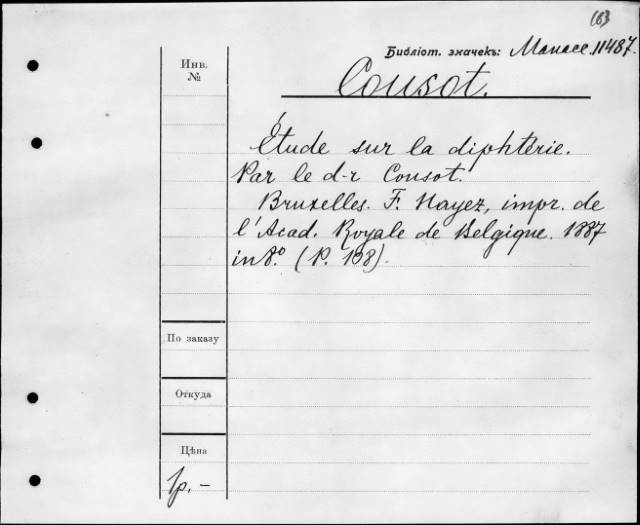 (63
Библіот. значекъ: Манасе. 11487.
Инв.
№
Cousot.
Étude sur la diphtérie.
Par le d-r Cousot.
Bruxelles. F. Hayez, impr. de
l'Acad. Royale de Belgique. 1887
in 8º. (P. 198).
По заказу
Откуда
Цѣна
1р. -